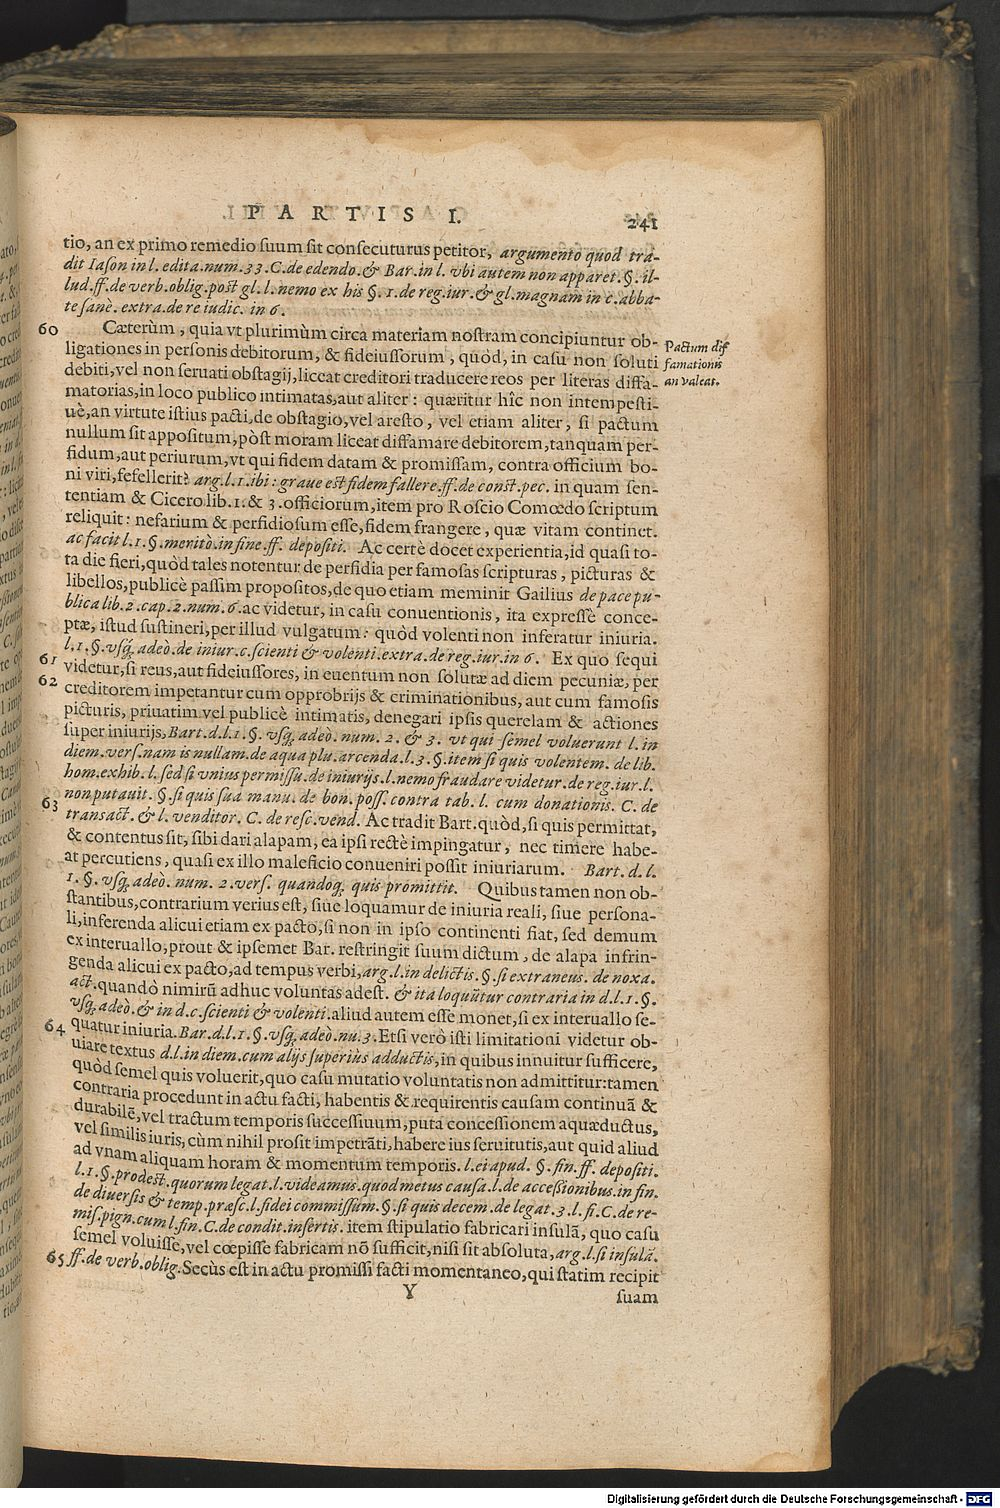 PARTIS I. 241
tio, an ex primo remedio suum sit consecuturus petitor, argumento quod tra-
dit Iason in l. edita. num. 33. C. de edendo. & Bar. in l. vbi autem non apparet. §. il-
lud. ff. de verb. oblig. post gl. l. nemo ex his §. 1. de reg. iur. & gl. magnam in c. abba-
te sanè. extra. de re iudic. in 6.
60 Cæterùm, quia vt plurimùm circa materiam nostram concipiuntur ob-
ligationes in personis debitorum, & fideiussorum, quòd, in casu non soluti
debiti, vel non seruati obstagij, liceat creditori traducere reos per literas diffa-
matorias, in loco publico intimatas, aut aliter: quæritur hîc non intempesti-
uè, an virtute istius pacti, de obstagio, vel aresto, vel etiam aliter, si pactum
nullum sit appositum, pòst moram liceat diffamare debitorem, tanquam per-
fidum, aut periurum, vt qui fidem datam & promissam, contra officium bo-
ni viri, fefellerit? arg. l. 1. ibi: graue est fidem fallere. ff. de const. pec. in quam sen-
tentiam & Cicero lib. 1. & 3. officiorum, item pro Roscio Comœdo scriptum
reliquit: nefarium & perfidiosum esse, fidem frangere, quæ vitam continet.
ac facit l. 1. §. meritò. in fine. ff. depositi. Ac certè docet experientia, id quasi to-
ta die fieri, quòd tales notentur de perfidia per famosas scripturas, picturas &
libellos, publicè passim propositos, de quo etiam meminit Gailius de pace pu-
blica lib. 2. cap. 2. num. 6. ac videtur, in casu conuentionis, ita expressè conce-
ptæ, istud sustineri, per illud vulgatum: quòd volenti non inferatur iniuria.
l. 1. §. vsq; adeò. de iniur. c. scienti & volenti. extra. de reg. iur. in 6. Ex quo sequi
61 videtur, si reus, aut fideiussores, in euentum non solutæ ad diem pecuniæ, per
62 creditorem impetantur cum opprobrijs & criminationibus, aut cum famosis
picturis, priuatim vel publicè intimatis, denegari ipsis querelam & actiones
super iniurijs, Bart. d. l. 1. §. vsq; adeò. num. 2. & 3. vt qui semel voluerunt l. in
diem. vers. nam is nullam. de aqua plu. arcenda. l. 3. §. item si quis volentem. de lib.
hom. exhib. l. sed si vnius permissu. de iniurijs. l. nemo fraudare videtur. de reg. iur. l.
non putauit. §. si quis sua manu. de bon. poss. contra tab. l. cum donationis. C. de
63 transact. & l. venditor. C. de resc. vend. Ac tradit Bart. quòd, si quis permittat,
& contentus sit, sibi dari alapam, ea ipsi rectè impingatur, nec timere habe-
at percutiens, quasi ex illo maleficio conueniri possit iniuriarum. Bart. d. l.
1. §. vsq; adeò. num. 2. vers. quandoq; quis promittit. Quibus tamen non ob-
stantibus, contrarium verius est, siue loquamur de iniuria reali, siue persona-
li, inferenda alicui etiam ex pacto, si non in ipso continenti fiat, sed demum
ex interuallo, prout & ipsemet Bar. restringit suum dictum, de alapa infrin-
genda alicui ex pacto, ad tempus verbi, arg. l. in delictis. §. si extraneus. de noxa.
act. quandò nimirũ adhuc voluntas adest. & ita loquũtur contraria in d. l. 1. §.
vsq; adeò. & in d. c. scienti & volenti. aliud autem esse monet, si ex interuallo se-
64 quatur iniuria. Bar. d. l. 1. §. vsq; adeò. nu. 3. Etsi verò isti limitationi videtur ob-
uiare textus d. l. in diem. cum alijs superiùs adductis, in quibus innuitur sufficere,
quòd semel quis voluerit, quo casu mutatio voluntatis non admittitur: tamen
contraria procedunt in actu facti, habentis & requirentis causam continuã &
durabilẽ, vel tractum temporis successiuum, puta concessionem aquæductus,
vel similis iuris, cùm nihil prosit impetrãti, habere ius seruitutis, aut quid aliud
ad vnam aliquam horam & momentum temporis. l. ei apud. §. fin. ff. depositi.
l. 1. §. prodest. quorum legat. l. videamus. quod metus causa. l. de accessionibus. in fin.
de diuersis & temp. præsc. l. fidei commissum. §. si quis decem. de legat. 3. l. fi. C. de re-
mis. pign. cum l. fin. C. de condit. insertis. item stipulatio fabricari insulã, quo casu
semel voluisse, vel cœpisse fabricam nõ sufficit, nisi sit absoluta, arg. l. si insulã.
65 ff. de verb. oblig. Secùs est in actu promissi facti momentaneo, qui statim recipit
Y suam
Pactum dif
famationis
an valeat.
Digitalisierung gefördert durch die Deutsche Forschungsgemeinschaft - DFG